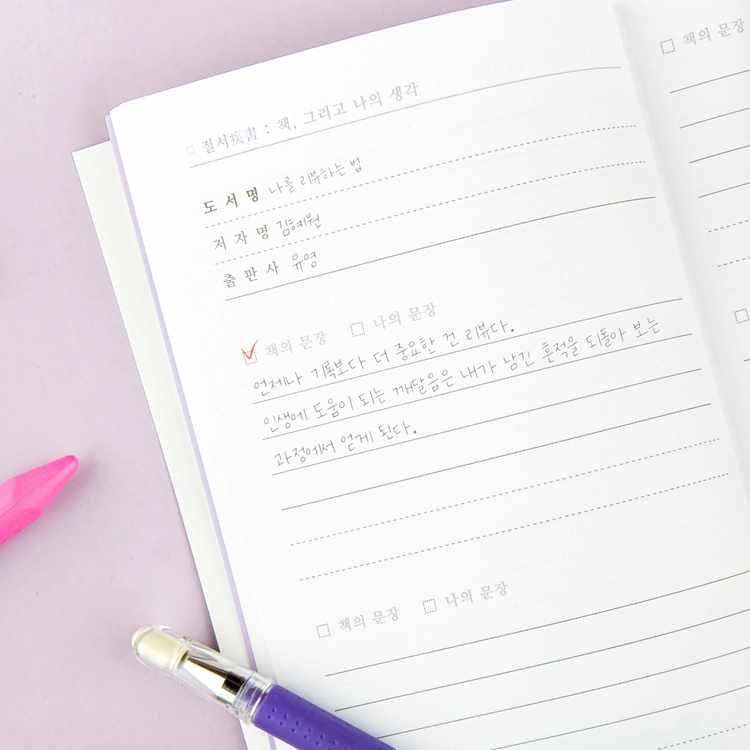 □ 질서疾書 : 책, 그리고 나의 생각
도서명 나를 리뷰하는 법
저자명 김혜원
출판사 유영
책의 문장 □ 나의 문장
언제나 기록보다 더 중요한 건 리뷰다.
인생에 도움이 되는 깨달음은 내가 남긴 흔적을 되돌아 보는
과정에서 얻게 된다.
□ 책의 문장 □ 나의 문장
□ 책의 문장